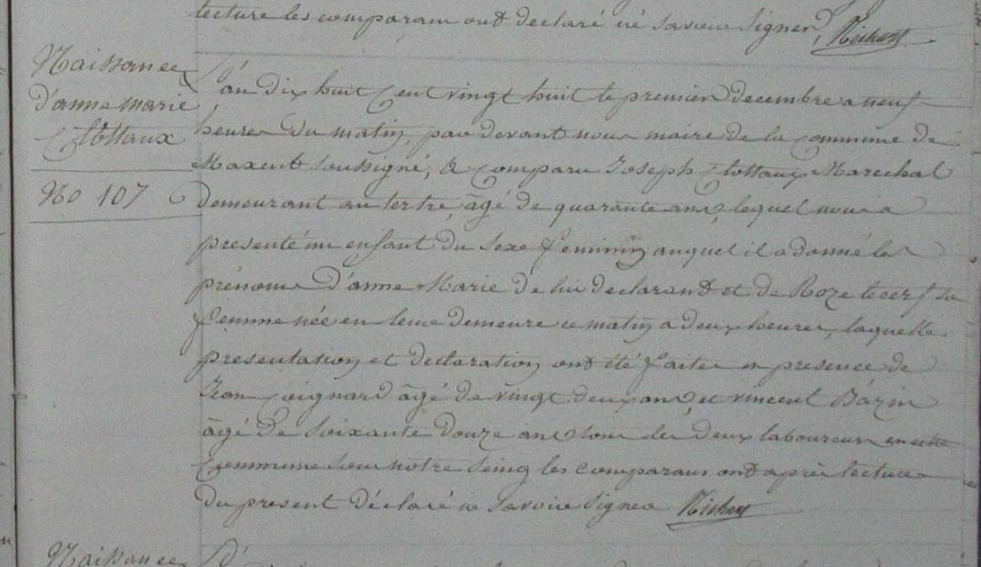 lecture les comparans ont declaré né savoir signer
Naissance
d'anne marie
Clottaux
No 107
L'an dix huit Cent vingt huit le premier decembre a neuf
heures du matin, par devant nous maire de la Commune de
Maxent soussigné, a Comparu Joseph Clottaux Marechal
Demeurant au tertre, agé de quarante ans, lequel nous a
presenté un enfant du sexe feminin auquel il a donné les
prénoms d'anne Marie de lui declarant et de Roze lecerf sa
femme née en leur demeure ce matin a deux heures, laquelle
presentation et declaration ont été faites en presence de
Jean Coignard âgé de vingt deux ans, et vincent Bazin
âgé de soixante douze ans tous les deux laboureurs en cette
Commune sous notre seing les comparans ont après lecture
du present déclaré ne savoir signer
Naissance
L'